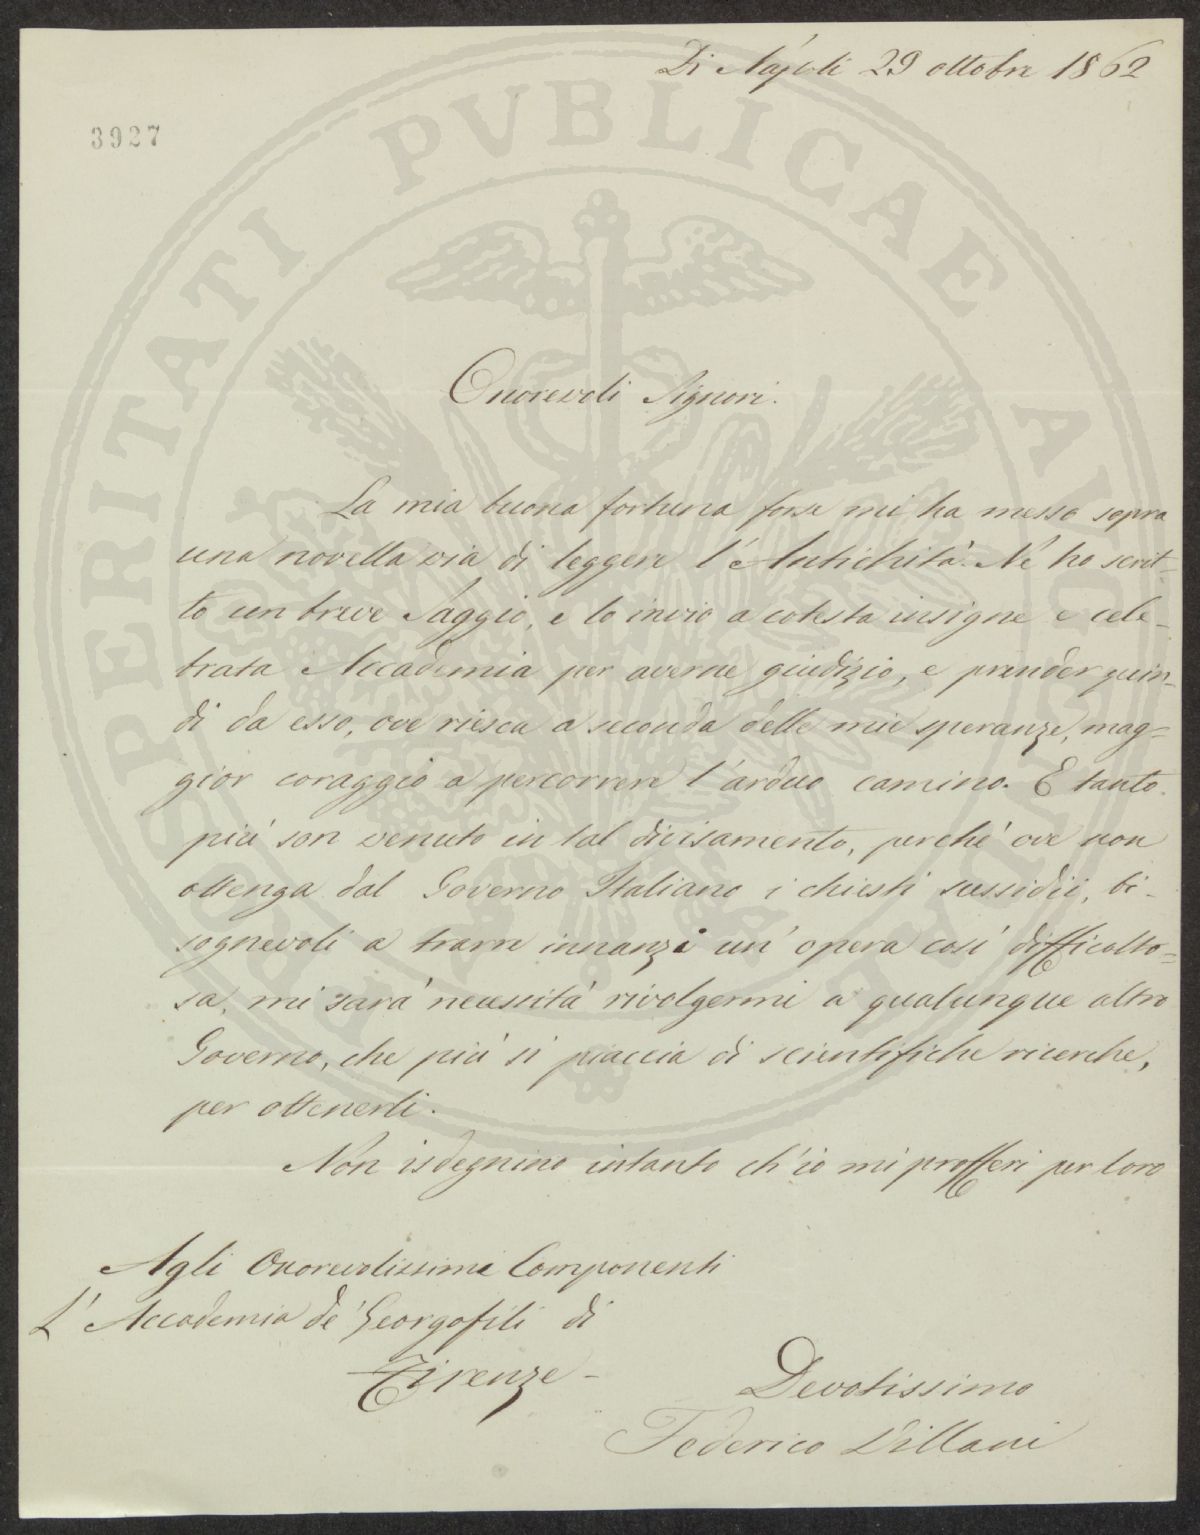 Di Napoli 29 ottobre 1862
3927
PROSPERITATI PVBLICAE AVGENDAE
Onorevoli Signori.
La mia buona fortuna forse mi ha messo sopra
una novella via di leggere l'Antichità. Nè ho scrit-
to un breve Saggio, e lo invio a cotesta insigne e cele-
brata Accademia per averne giudizio, e prender quin-
di da esso, ove riesca a seconda delle mie speranze, mag=
gior coraggio a percorrere l'arduo camino. E tanto
più son venuto in tal divisamento, perchè ove non
ottenga dal Governo Italiano i chiesti sussidii, bi-
sognevoli a trarre innanzi un'opera così difficolto=
sa, mi sarà necessità rivolgermi a qualunque altro
Governo, che più si piaccia di scientifiche ricerche,
per ottenerli.
Non isdegnino intanto ch'io mi profferi per loro
Agli Onorevolissimi Componenti
L'Accademia de' Georgofili di
Firenze -
Devotissimo
Federico Villani